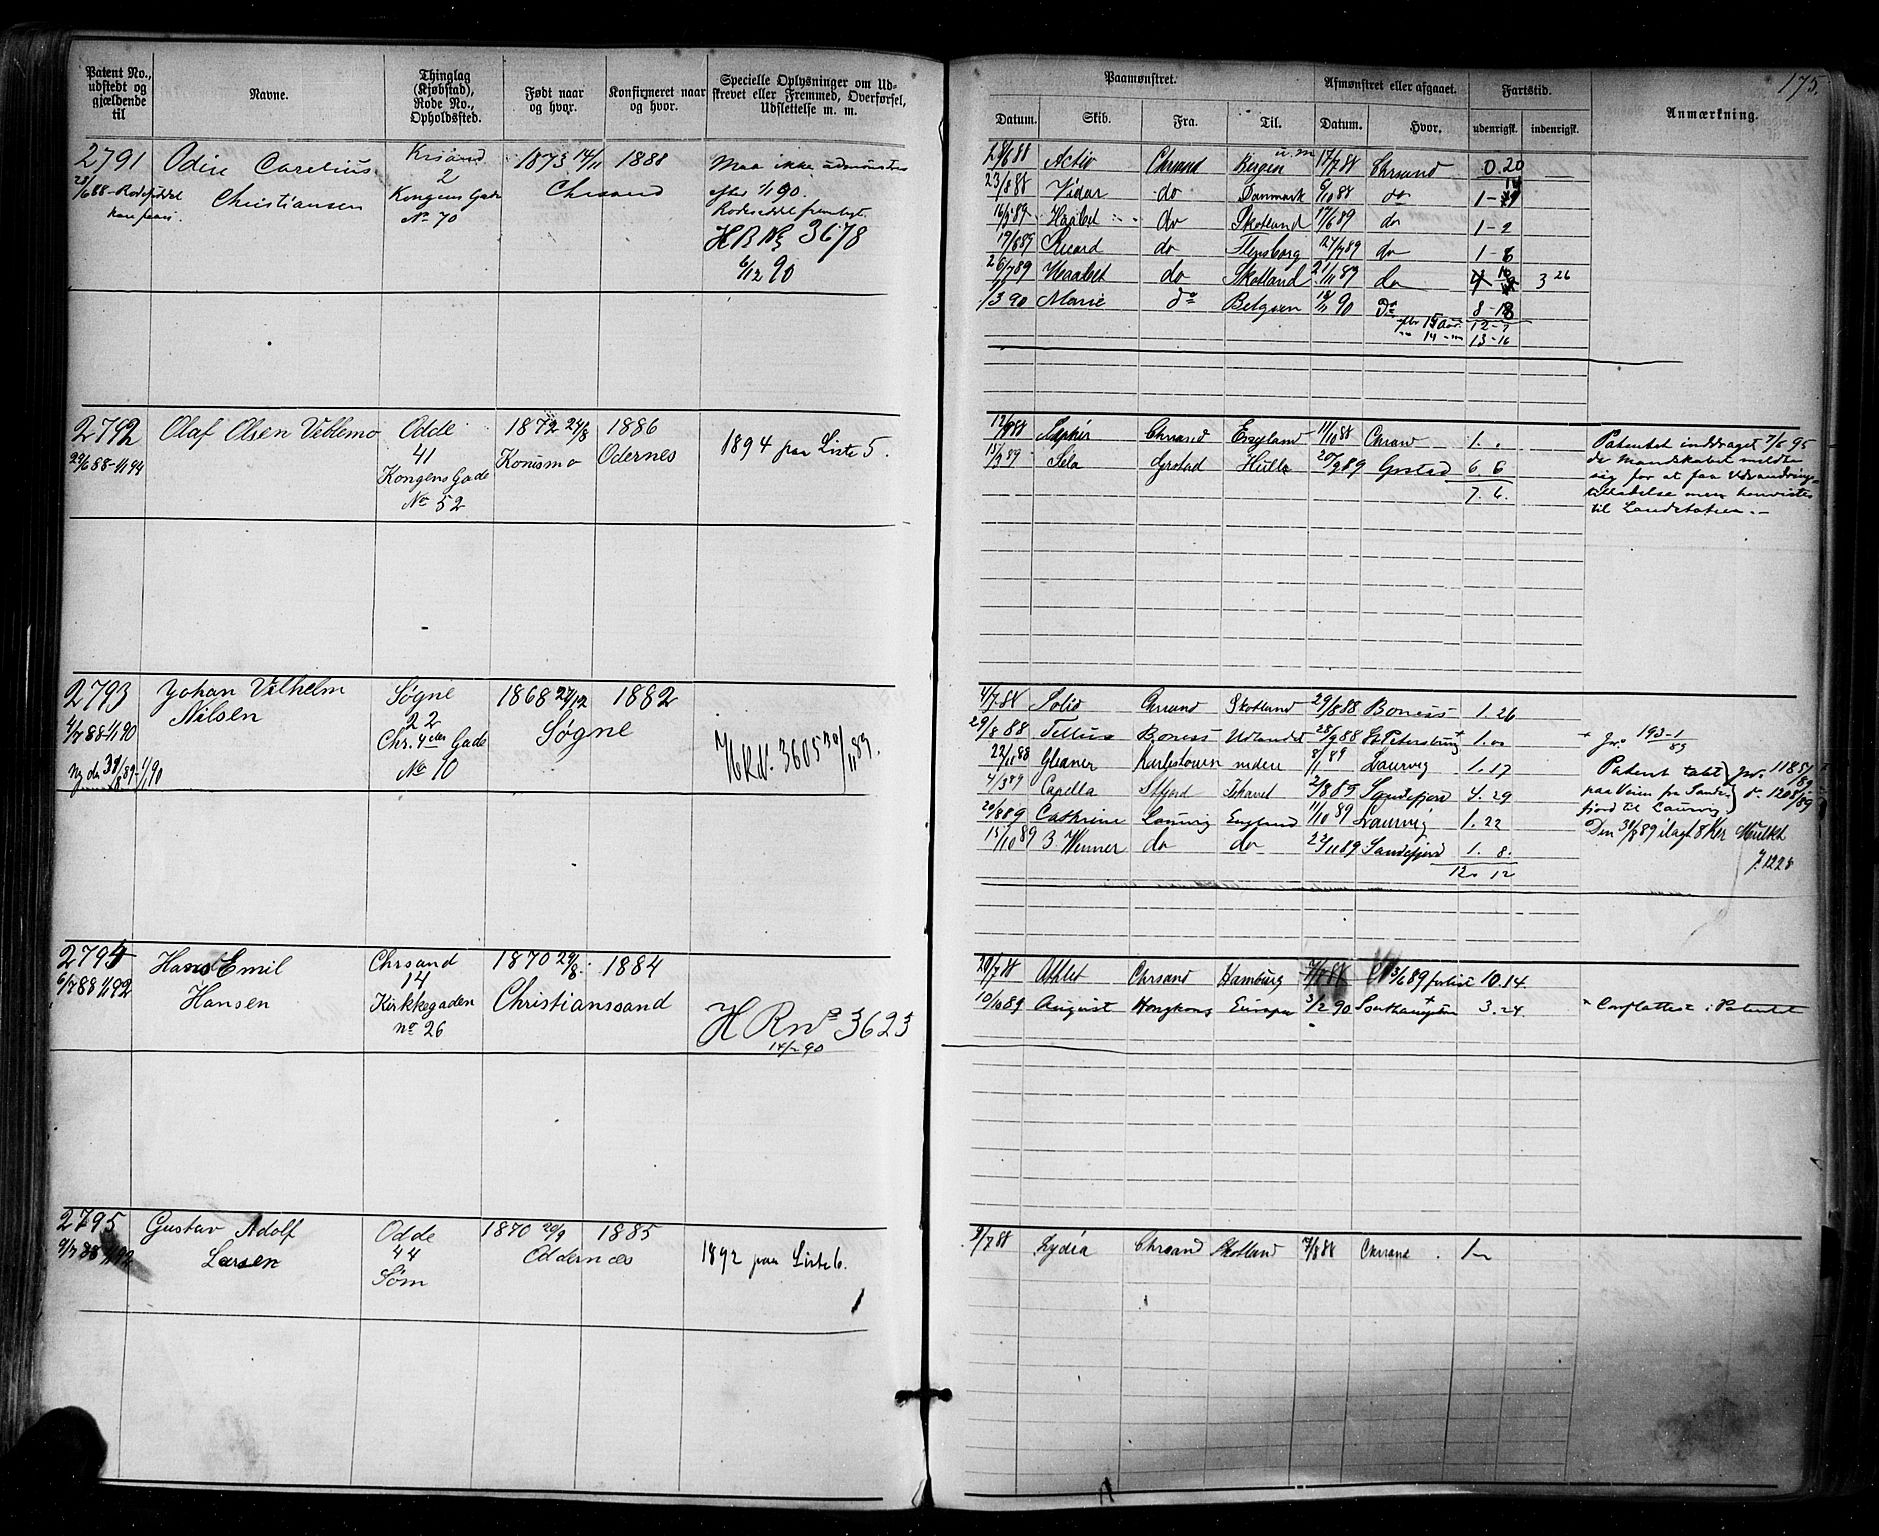 175.
Patent No., udstedt og gjældende til
Navne.
Thinglag (Kjøbstad), Rode No., Opholdssted.
Født naar og hvor.
Konfirmeret naar og hvor.
Specielle Oplysninger om Udskrevet eller Fremmed, Overførsel, Udslettelse m. m.
Paamønstret.
Afmønstret eller afgaaet.
Fartstid.
Anmærkning.
Datum.
Skib.
Fra.
Til.
Datum.
Hvor.
udenrigsk.
indenrigsk.
2791
Odin Carelius
Christiansen
Krsand
2
Kongens Gade
No 70
1873 14/11 1888
Chrsand
Maa ikke udmønstres
efter 1/1 90.
Rodeseddel frembragt.
H R No 3678
6/12 90
28/6 88 Activ Chrsand Bergen u. m 17/7 88 Chrsand 0.20
23/8 88 Vidar do Danmark 9/10 88 do
Haabet do Skotland 17/6 89 do 1-2
19/6 89 Ricard do Flensborg 27/7 89 do 1-8
26/7 89 Haabet do Skotland 21/11 89 do 3 26
1/3 90 Marie do Belgien 18/11 90 Do
12-7
13-16
2792
29/6 88-1/1 94
Olaf Olsen Vetlemo
Odde
41
Kongens Gade
No 52
1872 24/8 1886
Konismo Odernes
1894 paa Liste 5.
12/7 88 Saphir Chrsand England 11/10 88 Chrsand 1. "
15/3 89 Sela Grstad Hull 20/9 89 Grstad 6. 6
7. 6.
Patentet inddraget 7/5 95
da Mandskabet meldte
sig for at faa Udvandrings-
tilladelse men henvistes
til Landstaten. -
2793
4/7 88-1/1 90
Ny den 31/8 89-1/1 90
Johan Vilhelm
Nilsen
Søgne
22
Chr. 4des Gade
No 10
1868 27/12 1882
Søgne
HR No. 3605 30/11 89.
4/7 88 Solid Chrsand Skotland 29/8 88 Boness 1. 26
29/8 88 Tellus Boness Udlandet 28/9 88 St Petersburg + 1. 00
22/11 88 Gleaner Laurvig 1. 17
4/3 89 Capella Sfjord Ishavet 2/8 89 Sandefjord 4. 29
20/8 89 Cathrine Laurvig England 11/10 89 Laurvig 1. 22
15/10 89 3 Venner do do 22/11 89 Sandefjord 1. 8.
12. 12
+ Jr. 193-1/89
Patent tabt
paa Veien fra Sande-
fjord til Laurvig
Jr. 1185/89
o. 1208/89
Den 31/8 89 ilagt 8 Kr Mulkt
J. 1228
2794
6/7 88 1/1 92
Hans Emil
Hansen
Chrsand
14
Kirkkegaden
no 26
1870 29/8. 1884
Christianssand
H R no 3623
20/7 88 Athlet Chrsand Hamburg 3/6 89 forlist 10.14.
10/10 89 August Hongkong Europa 3/2 90 Southampton + 3. 24.
2795
9/7 88 1/1 92
Gustav Adolf
Larsen
Odde
44
Søm
1870 20/9 1885
Oddernæs
1892 paa Liste 6.
9/7 88 Lydia Chrsand Skotland 7/8 88 Chrsand